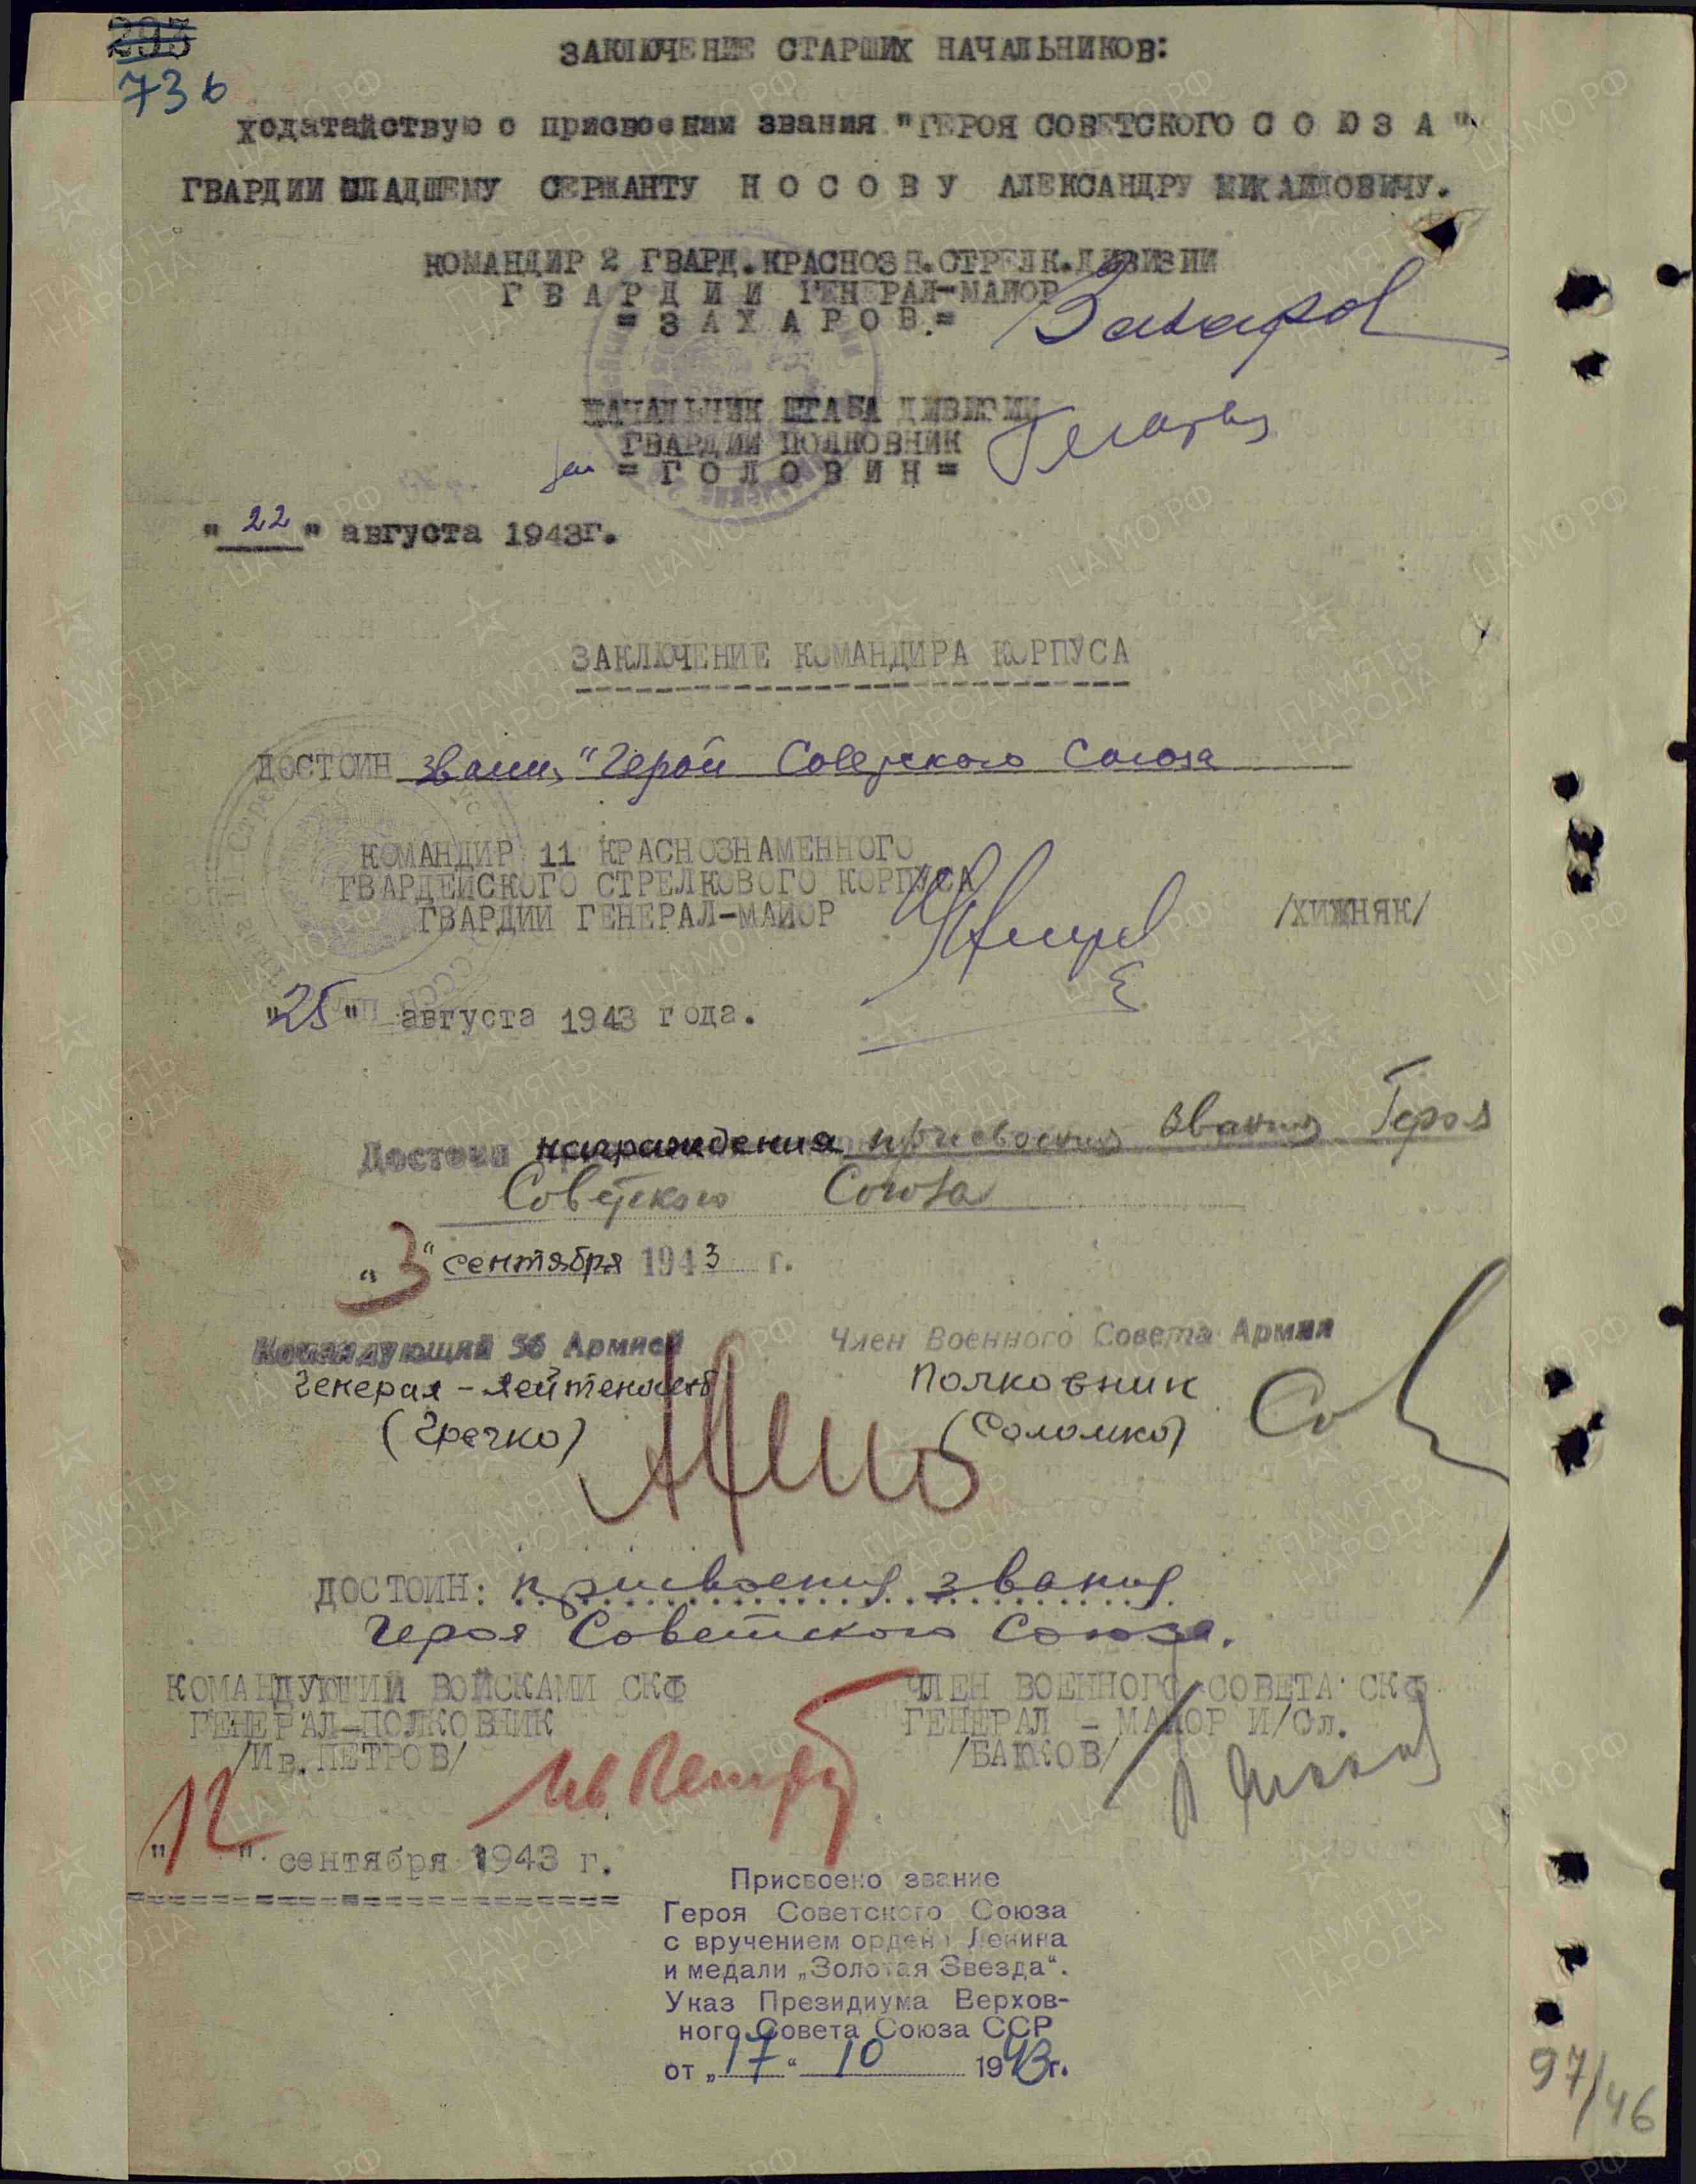 293
73б
ЗАКЛЮЧЕНИЕ СТАРШИХ НАЧАЛЬНИКОВ:
ходатайствую о присвоении звания "ГЕРОЯ СОВЕТСКОГО С О Ю З А"
ГВАРДИИ МЛАДШЕМУ СЕРЖАНТУ Н О С О В У АЛЕКСАНДРУ МИХАЙЛОВИЧУ.
КОМАНДИР 2 ГВАРД.КРАСНОЗН.СТРЕЛК.ДИВИЗИИ
Г В А Р Д И И ГЕНЕРАЛ-МАЙОР
= З А Х А Р О В.= Захаров
НАЧАЛЬНИК ШТАБА ДИВИЗИИ
ГВАРДИИ ПОДКОВНИК
= Г О Л О В И Н =
"22" августа 1943г.
ЗАКЛЮЧЕНИЕ КОМАНДИРА КОРПУСА
ДОСТОИН звания "Герой Советского Союза
КОМАНДИР 11 КРАСНОЗНАМЕННОГО
ГВАРДЕЙСКОГО СТРЕЛКОВОГО КОРПУСА
ГВАРДИИ ГЕНЕРАЛ-МАЙОР /ХИЖНЯК/
"25" августа 1943 года.
Достоин награждения присвоения звания Героя
Советского Союза
"3" сентября 1943 г.
Командующий 56 Армией Член Военного Совета Армии
Генерал-лейтенант Полковник
(Гречко) (Соломко)
ДОСТОИН: присвоения звания
Героя Советского Союза.
КОМАНДУЮЩИЙ ВОЙСКАМИ СКФ ЧЛЕН ВОЕННОГО СОВЕТА СКФ
ГЕНЕРАЛ-ПОЛКОВНИК ГЕНЕРАЛ - МАЙОР И/Сл.
/Ив. ПЕТРОВ/ Ив Петров /БАЮКОВ/
"12" сентября 1943 г.
Присвоено звание
Героя Советского Союза
с вручением ордена Ленина
и медали „Золотая Звезда“.
Указ Президиума Верхов-
ного Совета Союза ССР
от „17“ 10 1943г.
97/46